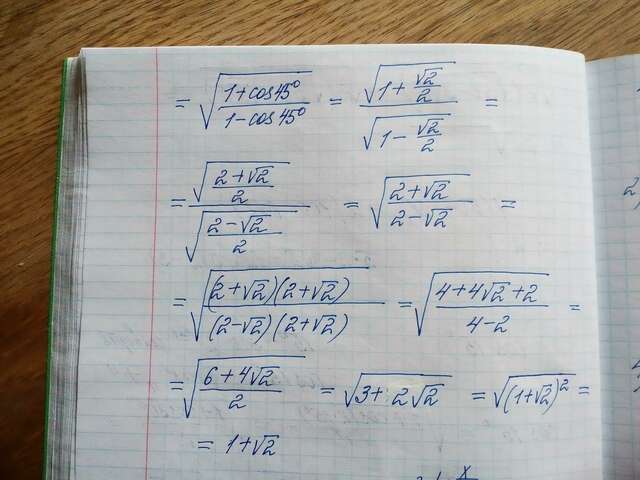 = √((1+cos45°)/(1-cos45°)) = √(1+√2/2)/√(1-√2/2) =
= √((2+√2)/2)/√((2-√2)/2) = √((2+√2)/(2-√2)) =
= √((2+√2)(2+√2)/(2-√2)(2+√2)) = √((4+4√2+2)/(4-2)) =
= √((6+4√2)/2) = √(3+2√2) = √((1+√2)²) =
= 1+√2